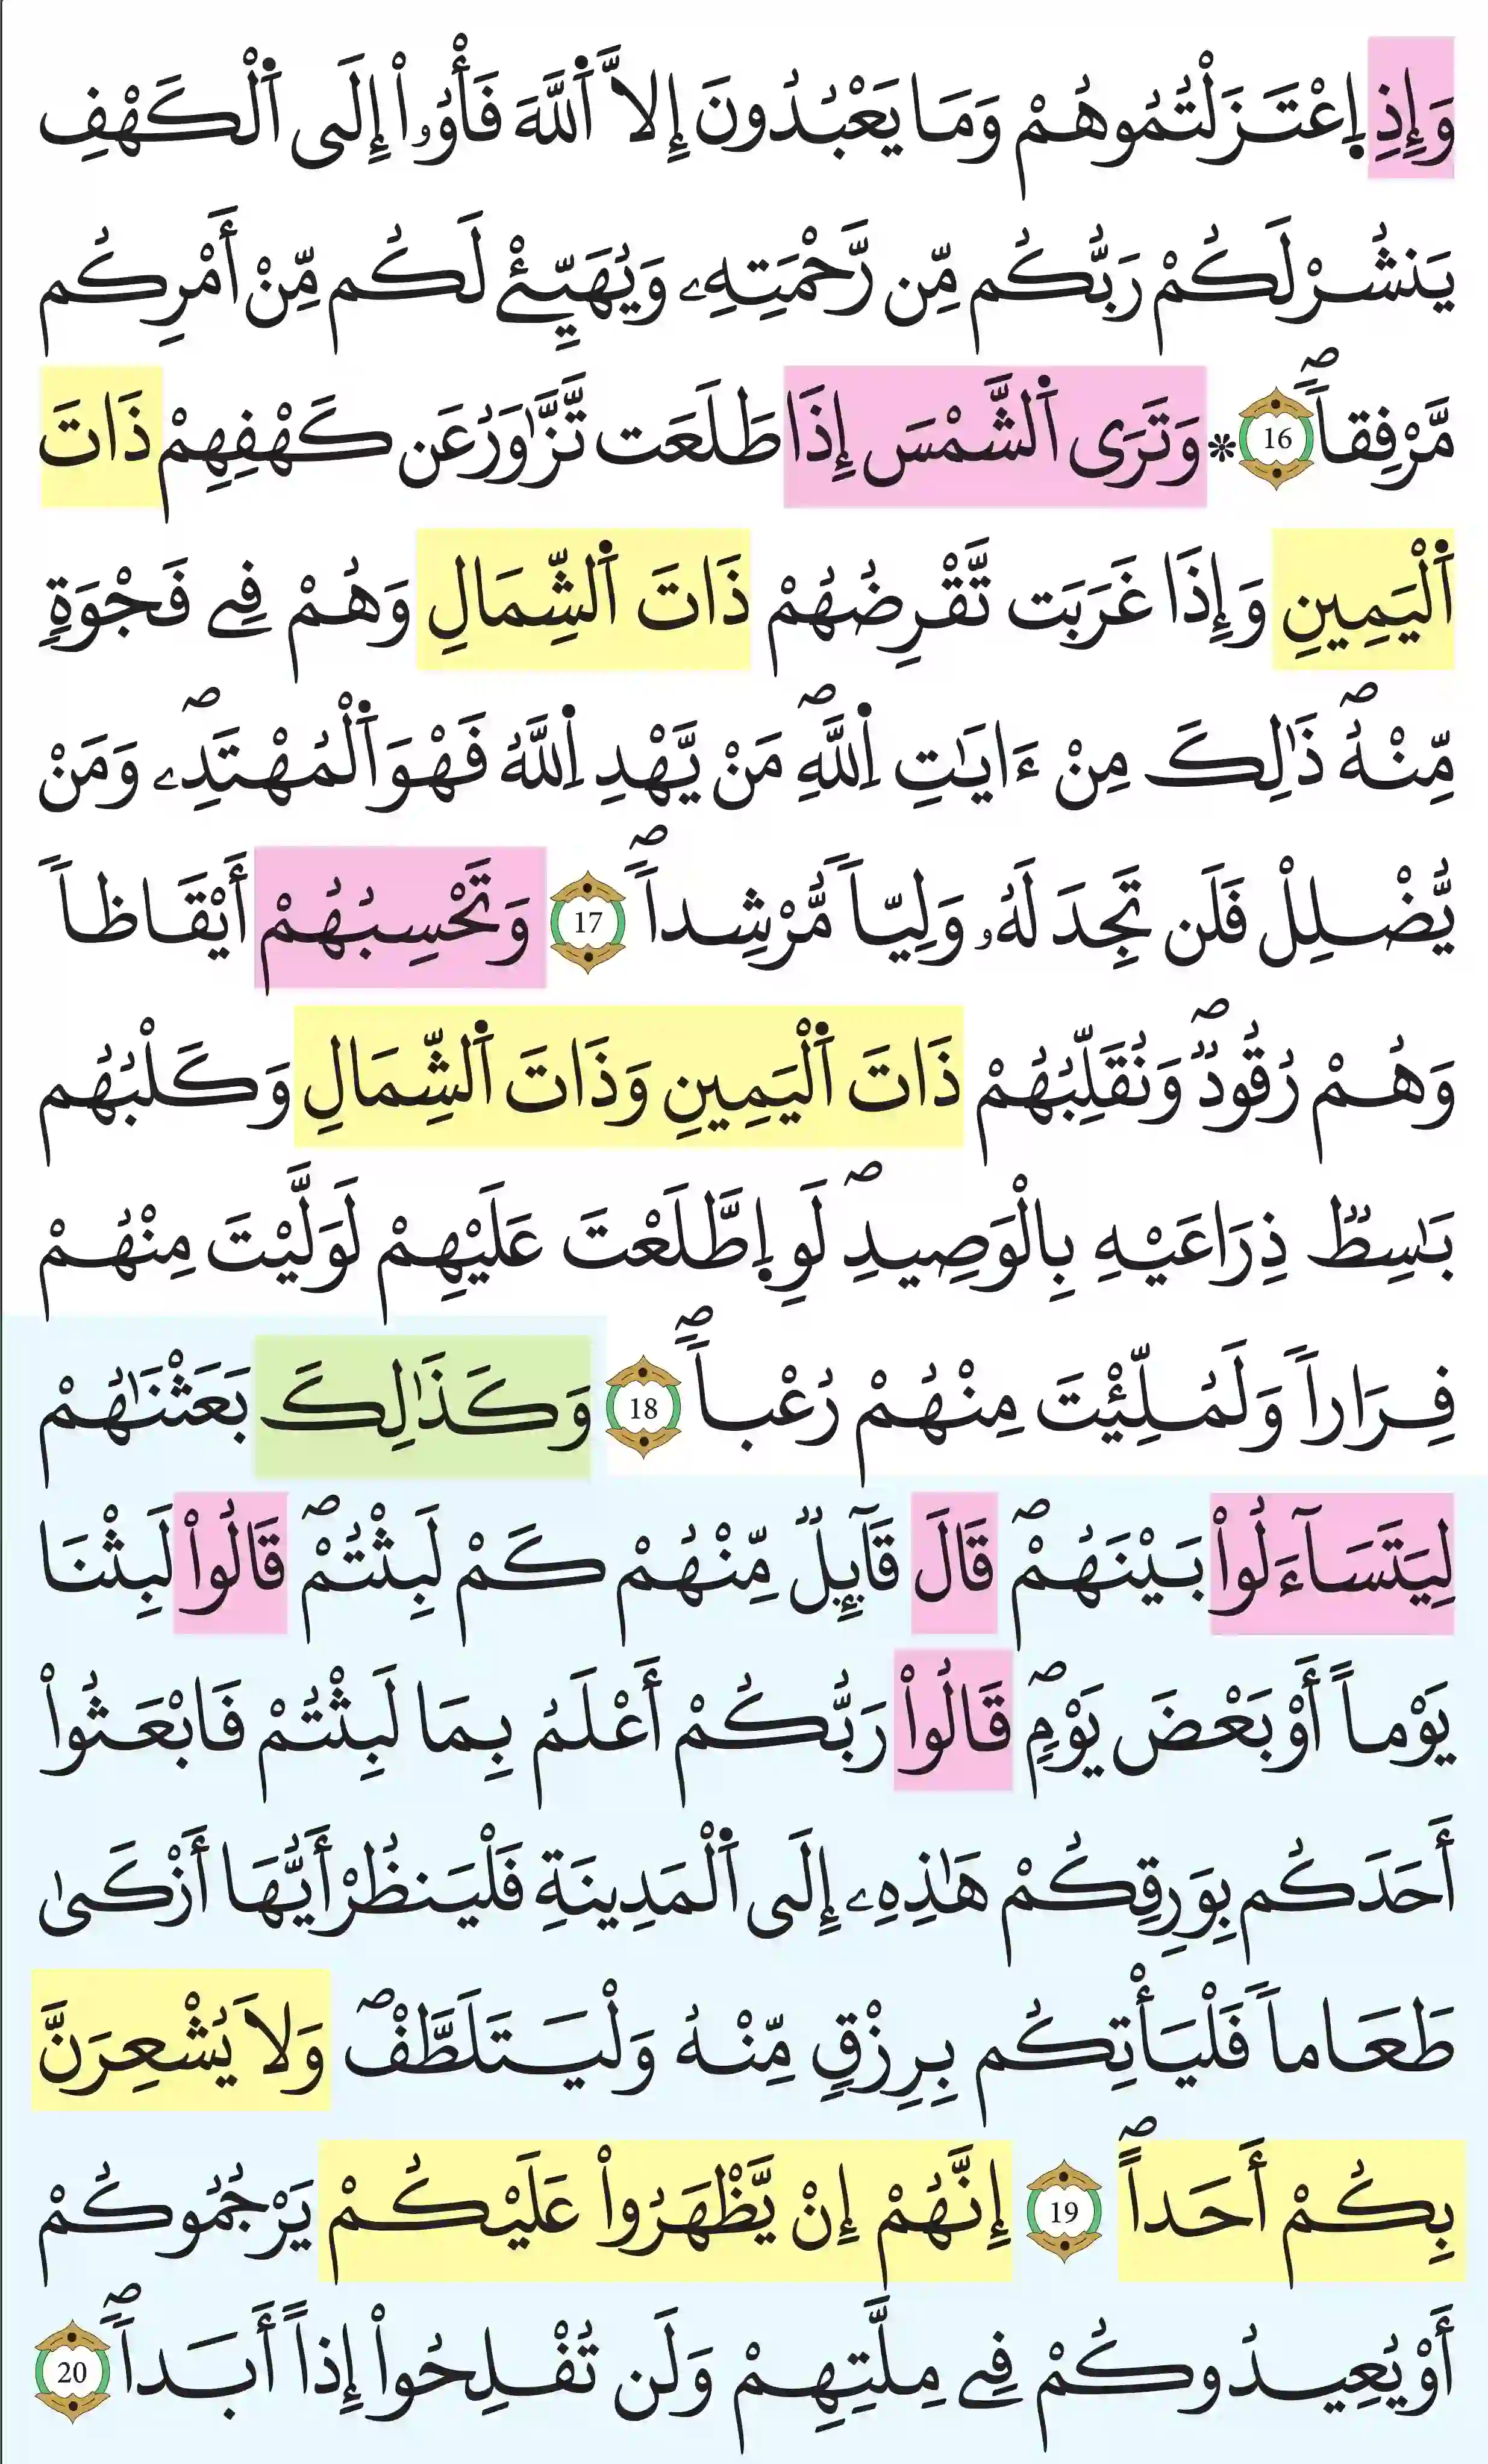 وَإِذِ اِ۪عْتَزَلْتُمُوهُمْ وَمَا يَعْبُدُونَ إِلاَّ اَ۬للَّهَ فَأْوُۥٓاْ إِلَى اَ۬لْكَهْفِ
يَنشُرْ لَكُمْ رَبُّكُم مِّن رَّحْمَتِهِۦ وَيُهَيِّئْ لَكُم مِّنْ أَمْرِكُم
مَّرْفِقاًۖ 16 * وَتَرَى اَ۬لشَّمْسَ إِذَا طَلَعَت تَّزَّٰوَرُ عَن كَهْفِهِمْ ذَاتَ
اَ۬لْيَمِينِ وَإِذَا غَرَبَت تَّقْرِضُهُمْ ذَاتَ اَ۬لشِّمَالِ وَهُمْ فِے فَجْوَةٍ
مِّنْهُۖ ذَٰلِكَ مِنْ ءَايَٰتِ اِ۬للَّهِۖ مَنْ يَّهْدِ اِ۬للَّهُ فَهْوَ اَ۬لْمُهْتَدِۦۖ وَمَنْ
يُّضْلِلْ فَلَن تَجِدَ لَهُۥ وَلِيّاً مُّرْشِداًۖ 17 وَتَحْسِبُهُمْ أَيْقَاظاً
وَهُمْ رُقُودٌۖ وَنُقَلِّبُهُمْ ذَاتَ اَ۬لْيَمِينِ وَذَاتَ اَ۬لشِّمَالِ وَكَلْبُهُم
بَٰسِطٌ ذِرَاعَيْهِ بِالْوَصِيدِۖ لَوِ اِ۪طَّلَعْتَ عَلَيْهِمْ لَوَلَّيْتَ مِنْهُمْ
فِرَاراً وَلَمُلِّئْتَ مِنْهُمْ رُعْباًۖ 18 وَكَذَٰلِكَ بَعَثْنَٰهُمْ
لِيَتَسَآءَلُواْ بَيْنَهُمْۖ قَالَ قَآئِلٌ مِّنْهُمْ كَمْ لَبِثْتُمْۖ قَالُواْ لَبِثْنَا
يَوْماً أَوْ بَعْضَ يَوْمٍۖ قَالُواْ رَبُّكُمْ أَعْلَمُ بِمَا لَبِثْتُمْ فَابْعَثُواْ
أَحَدَكُم بِوَرِقِكُمْ هَٰذِهِۦ إِلَى اَ۬لْمَدِينَةِ فَلْيَنظُرْ أَيُّهَا أَزْكَىٰ
طَعَاماً فَلْيَأْتِكُم بِرِزْقٍ مِّنْهُ وَلْيَتَلَطَّفْۖ وَلاَ يُشْعِرَنَّ
بِكُمْ أَحَداًۖ 19 إِنَّهُمْ إِنْ يَّظْهَرُواْ عَلَيْكُمْ يَرْجُمُوكُمْ
أَوْ يُعِيدُوكُمْ فِے مِلَّتِهِمْ وَلَن تُفْلِحُواْ إِذاً أَبَداًۖ 20